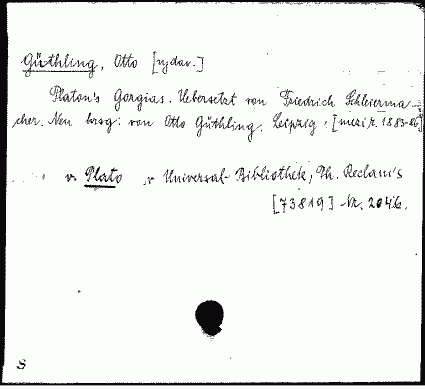 Güthling, Otto [vydav.]
Platon's Gorgias. Uebersetzt von Friedrich Schleierma-
cher. Neu hrsg. von Otto Güthling. Leipzig, [mezi r. 1883-86]
v. Plato v Universal-Bibliothek, Ph. Reclam's
[73819] Nr. 2046.
S